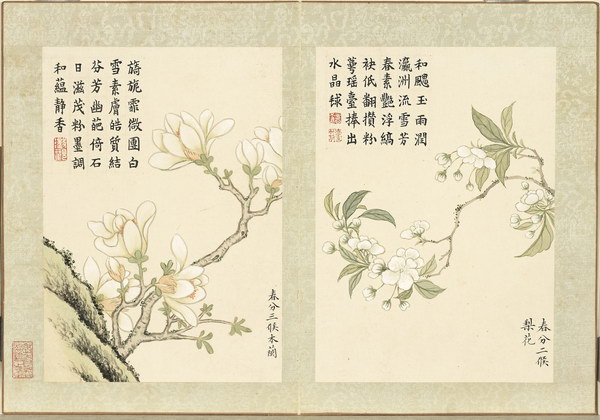 和颸玉雨潤
瀛洲流雪芳
春素艷浮縞
袂低翻攢粉
蕚瑶臺捧出
水晶毬
春分二候
梨花
旖旎霏微團白
雪素膚皓質結
芬芳幽葩倚石
日滋茂粉墨調
和蘊靜香
春分三候木蘭